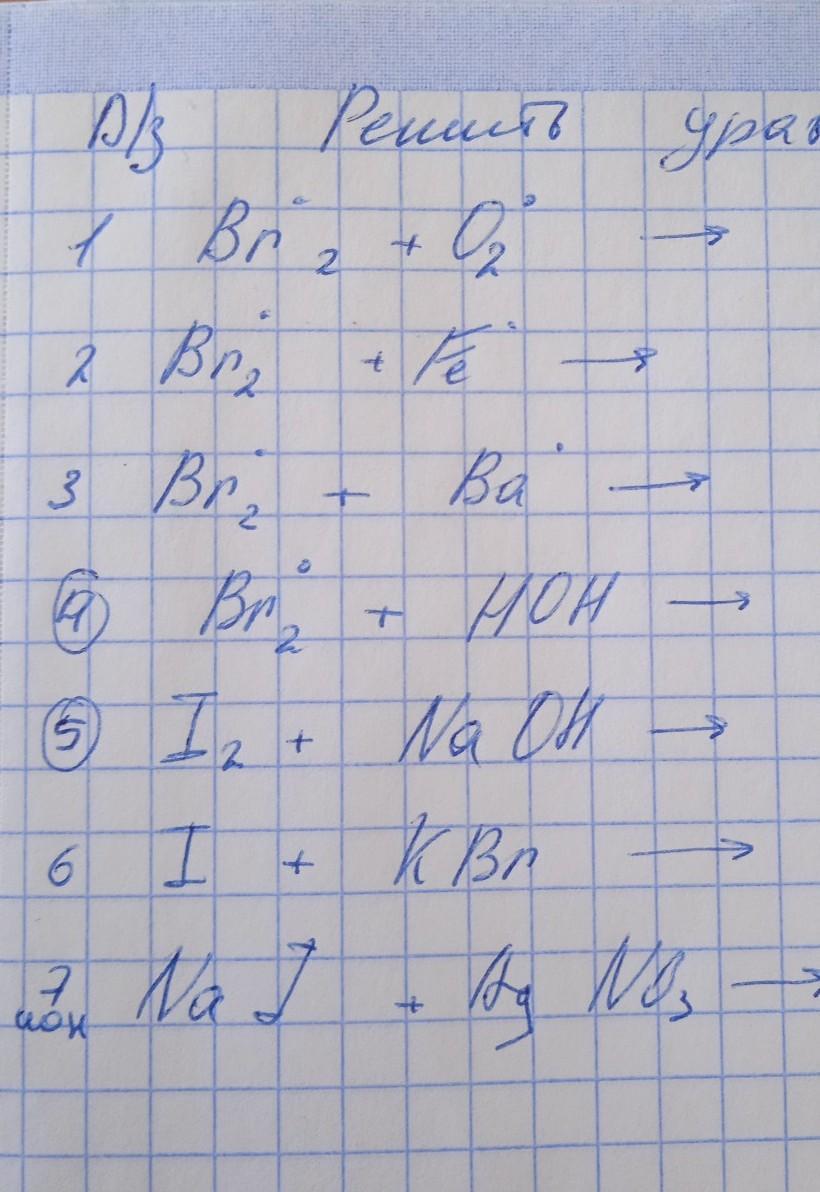 Д/з Решить урав
1 Br₂° + O₂° →
2 Br₂° + Fe° →
3 Br₂° + Ba° →
④ Br₂° + HOH →
⑤ I₂ + NaOH →
6 I + KBr →
7 NaI + AgNO₃ →
ион